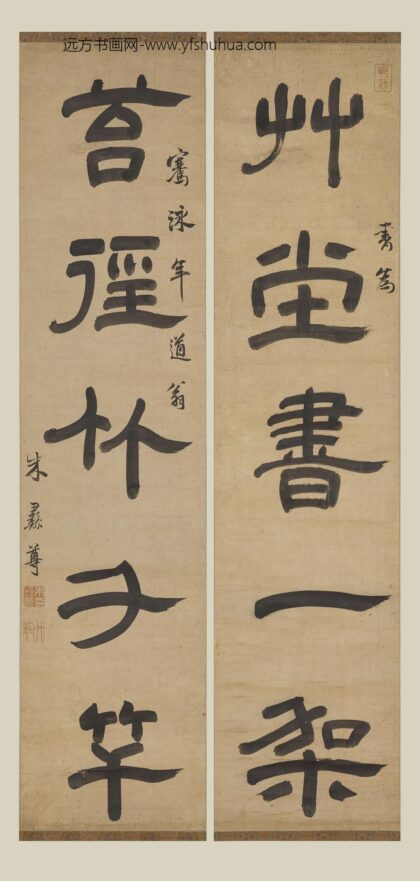 远方书画网-www.yfshuhua.com
艸堂書一架
書為
苔徑竹千竿
騫泳年道翁
朱彝尊